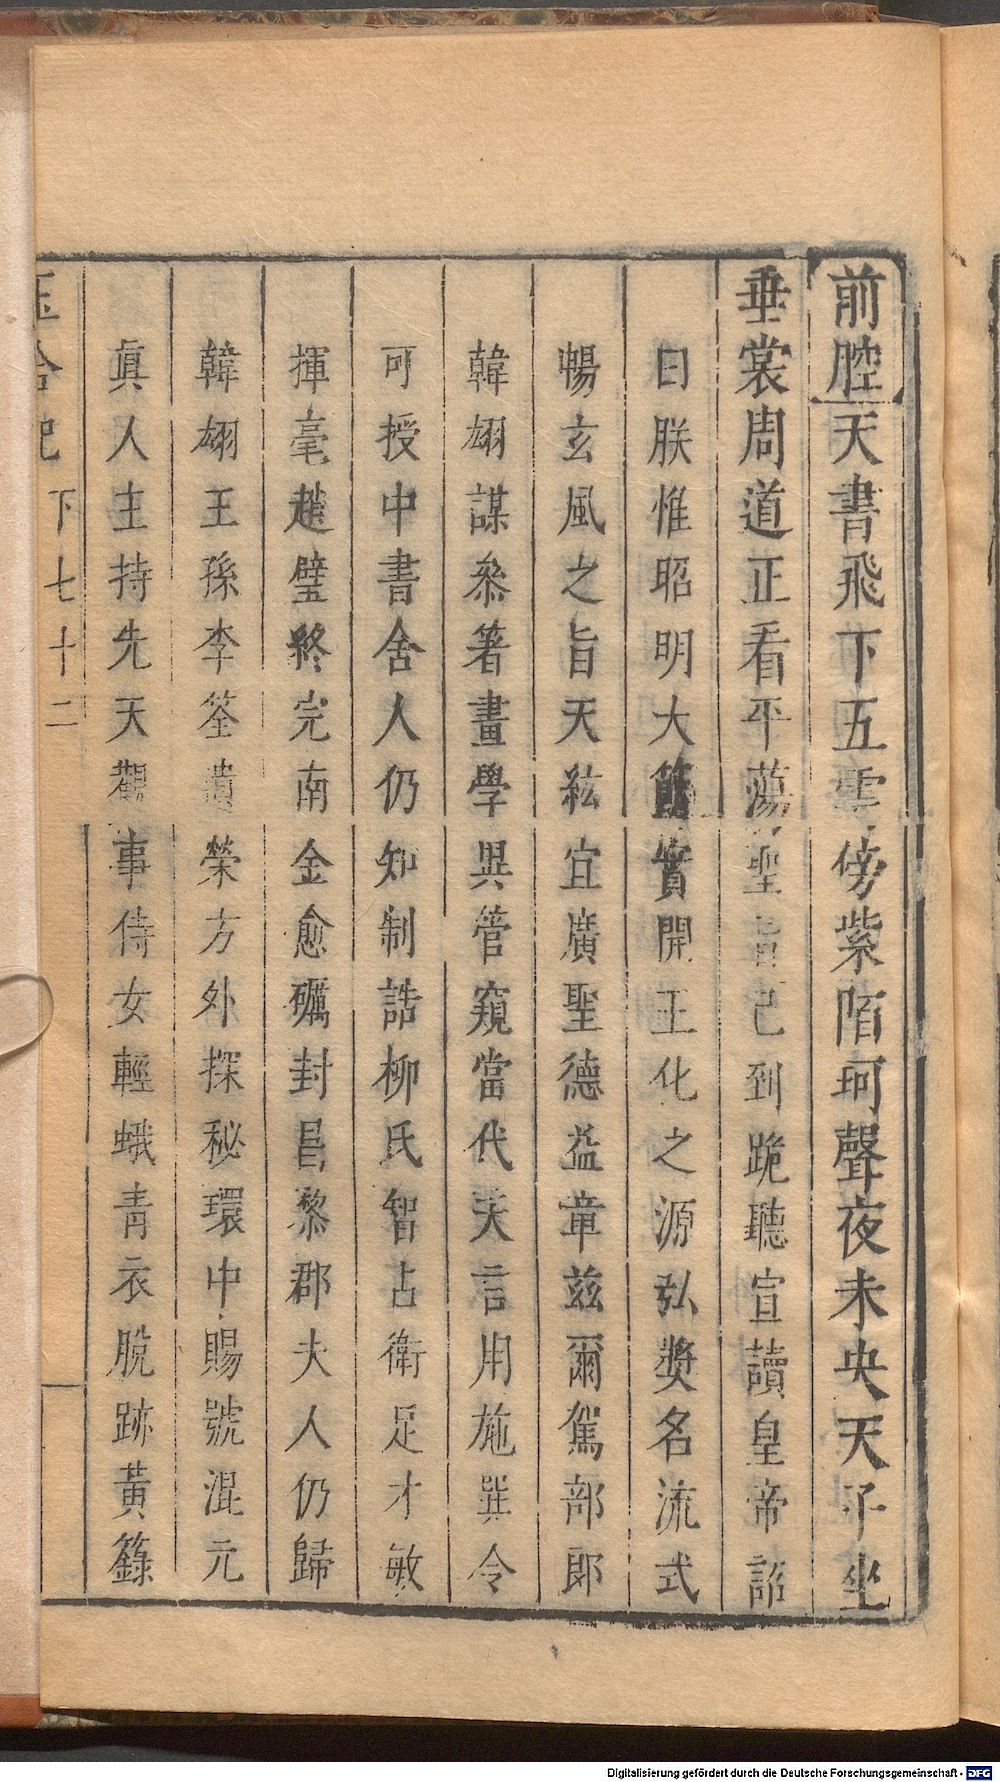 前腔天書飛下五雲傍紫陌珂聲夜未央天子坐
垂裳周道正看平蕩聖旨已到跪聽宣讀皇帝詔
曰朕惟昭明大節實開王化之源弘奬名流式
暢玄風之旨天紘宜廣聖德益章茲爾駕部郎
韓翃謀叅箸畫學異管窺當代天言用施巽令
可授中書舍人仍知制誥柳氏智占衛足才敏
揮毫趙璧終完南金愈礪封昌黎郡夫人仍歸
韓翃王孫李筌遺榮方外探秘環中賜號混元
眞人主持先天觀事侍女輕蛾青衣脫跡黃籙
玉合記 下七十二
Digitalisierung gefördert durch die Deutsche Forschungsgemeinschaft - DFG